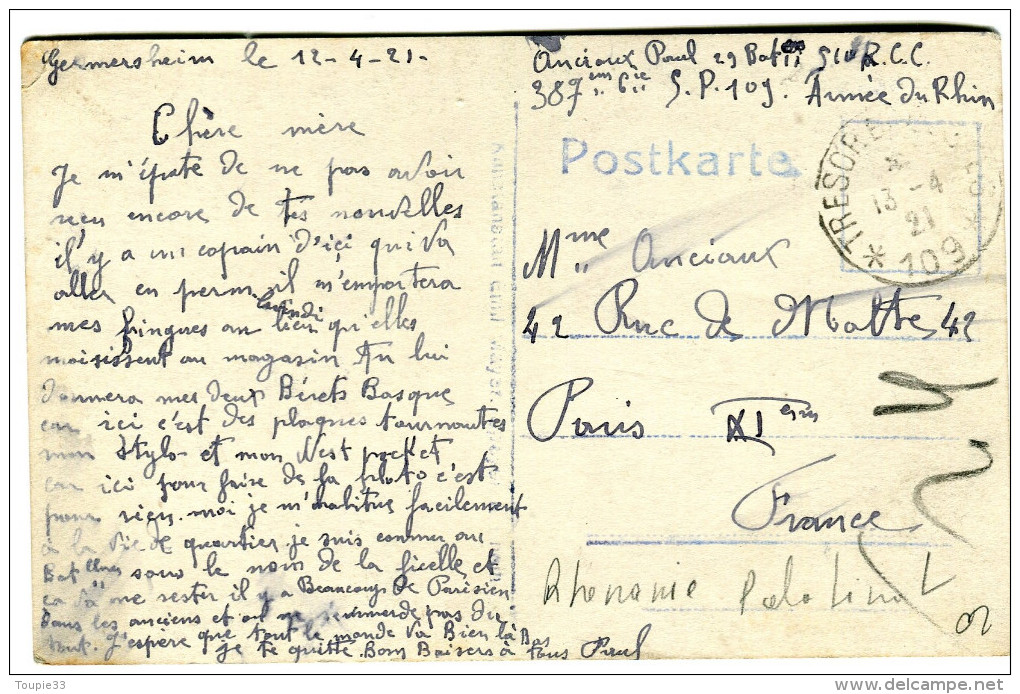 Germersheim le 12-4-21-
Chère mère
Je m'épate de ne pas avoir
reçu encore de tes nouvelles
il y a un copain d'ici qui va
aller en perm il m'emportera
lundi
mes fringues au lieu qu'elles
moisissent au magasin Tu lui
donnera mes deux Bérets Basque
car ici c'est des plaques tournantes
mon Stylo et mon Vest pocket
car ici pour faire de la photo c'est
pour rien. moi je m'habitue facilement
à la vie de quartier je suis connu au
Bat sous le nom de la ficelle et
ça va me rester il y a Beaucoup de Parisien
dans les anciens et on ne s'emmerde pas du
tout. J'espère que tout le monde va Bien là Bas
je te quitte. Bons Baisers à tous Paul
Anciaux Paul 29 Bat 510 R.C.C.
387em Cie S.P. 109. Armée du Rhin
Postkarte
TRESOR ET POSTES
13-4
21
* 109 *
Mme Anciaux
42 Rue de Malte 42
Paris XI em
France
Rhenanie Palatinat
Toupie33
www.delcampe.net